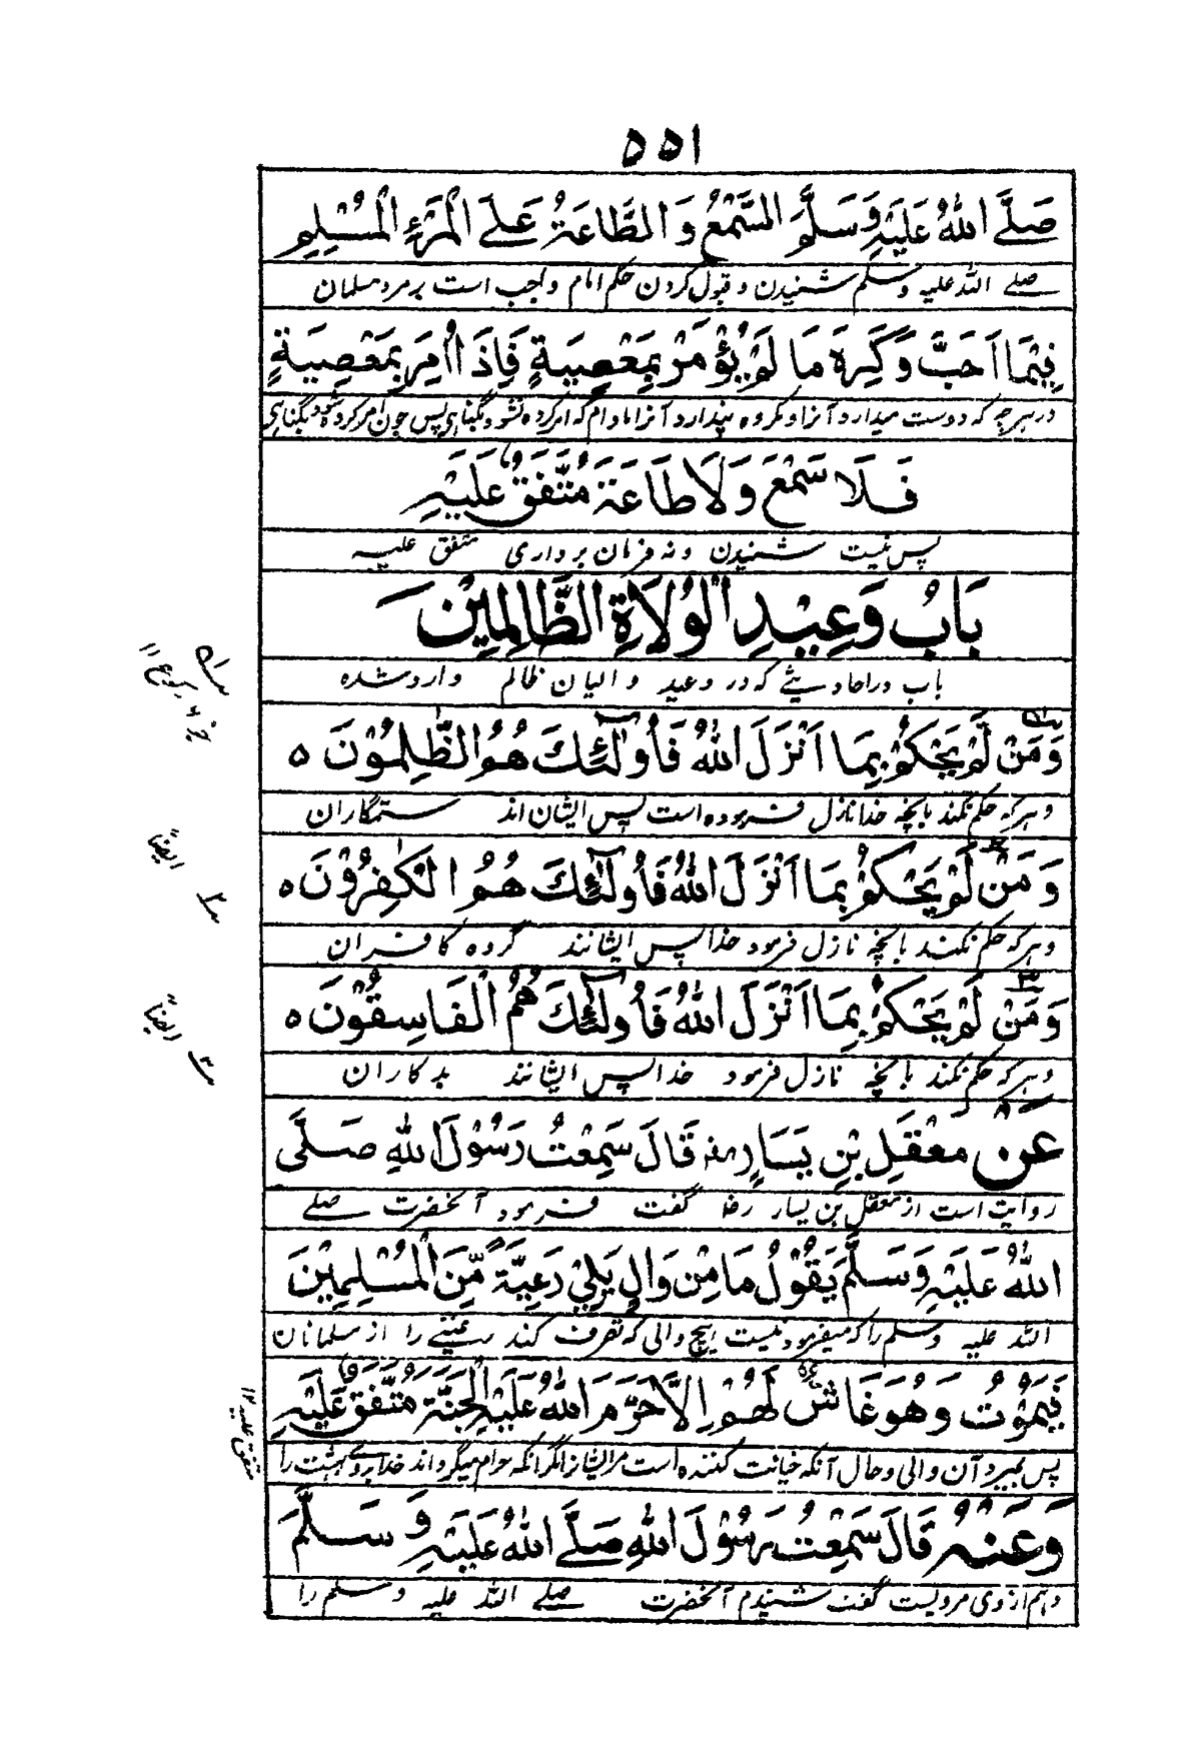 ٥٥١
صَلَّے اللهُ عَلَيْهِ وَسَلَّمَ السَّمْعُ وَالطَّاعَةُ عَلَے الْمَرْءِ الْمُسْلِمِ
صلے الله علیه وسلم شنیدن و قبول کردن حکم امام واجب است بر مرد مسلمان
فِيْمَا اَحَبَّ وَكَرِهَ مَا لَمْ يُؤْمَرْ بِمَعْصِيَةٍ فَاِذَا اُمِرَ بِمَعْصِيَةٍ
در هر چه که دوست میدارد آنرا و مکروه پندارد آنرا مادام که امر کرده نشود بگناهی پس چون امر کرده شود بگناهی
فَلَا سَمْعَ وَلَا طَاعَةَ مُتَّفَقٌ عَلَيْهِ
پس نیست شنیدن و نه فرمان برداری متفق علیه
بَابُ وَعِيْدِ الْوُلَاةِ الظَّالِمِيْنَ
باب در احادیثے که در وعید والیان ظالم وارد شده
وَمَنْ لَّمْ يَحْكُمْ بِمَا اَنْزَلَ اللهُ فَاُولٰٓئِكَ هُمُ الظّٰلِمُوْنَ ٥
و هر که حکم نکند بانچه خدا نازل فرموده است پس ایشان اند ستمگاران
وَمَنْ لَّمْ يَحْكُمْ بِمَا اَنْزَلَ اللهُ فَاُولٰٓئِكَ هُمُ الْكٰفِرُوْنَ ٥
و هر که حکم نکند بانچه نازل فرمود خدا پس ایشانند گروه کافران
وَمَنْ لَمْ يَحْكُمْ بِمَا اَنْزَلَ اللهُ فَاُولٰٓئِكَ هُمُ الْفَاسِقُوْنَ ٥
و هر که حکم نکند بانچه نازل فرمود خدا پس ایشانند بدکاران
عَنْ مَعْقَلِ بْنِ يَسَارٍ رض قَالَ سَمِعْتُ رَسُوْلَ اللهِ صَلَّى
روایت است از معقل بن یسار رض گفت فرمود آنحضرت صلے
اللهُ عَلَيْهِ وَسَلَّمَ يَقُوْلُ مَا مِنْ وَالٍ يَلِيْ رَعِيَّةً مِّنَ الْمُسْلِمِيْنَ
الله علیه وسلم را که میفرمود نیست هیچ والی که تصرف کند رعیتے را از مسلمانان
فَيَمُوْتُ وَهُوَ غَاشٌّ لَهُمْ اِلَّا حَرَّمَ اللهُ عَلَيْهِ الْجَنَّةَ مُتَّفَقٌ عَلَيْهِ
پس بمیرد آن والی و حال آنکه خیانت کننده است مر ایشانرا مگر آنکه حرام میگرداند خدا بر وے بهشت را
وَعَنْهُ قَالَ سَمِعْتُ رَسُوْلَ اللهِ صَلَّے اللهُ عَلَيْهِ وَسَلَّمَ
و هم از وی مرویست گفت شنیدم آنحضرت صلے الله علیه وسلم را
ایضاً
ایضاً
متفق علیه ١٢